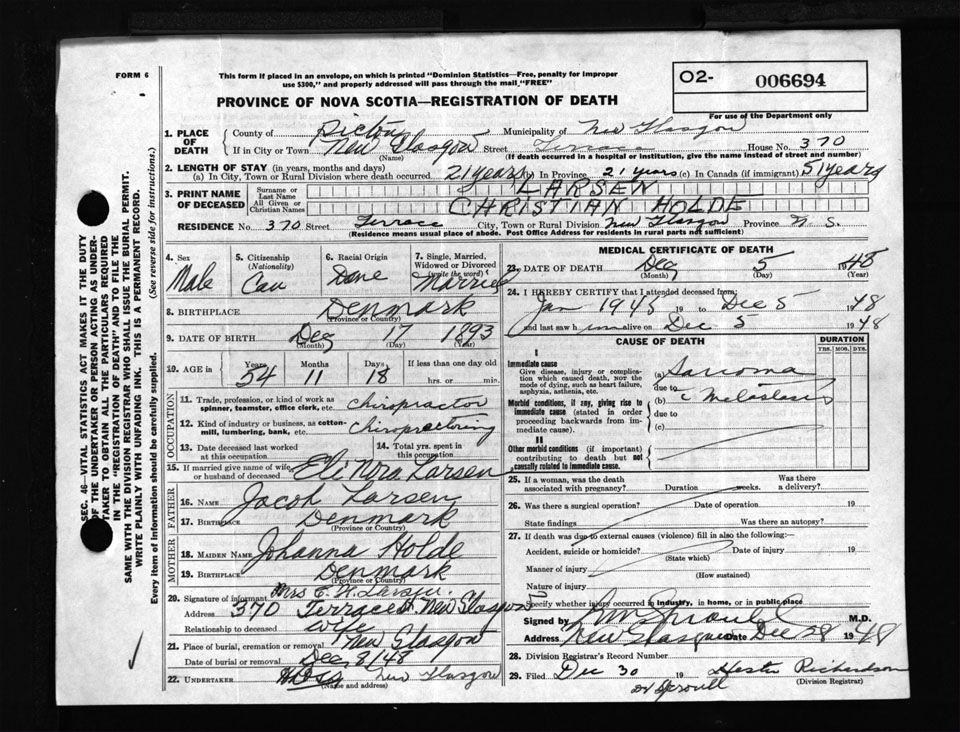 FORM 6
This form if placed in an envelope, on which is printed "Dominion Statistics—Free, penalty for improper
use $300," and properly addressed will pass through the mail "FREE"
O2- 006694
For use of the Department only
PROVINCE OF NOVA SCOTIA—REGISTRATION OF DEATH
1. PLACE OF DEATH
County of Pictou Municipality of New Glasgow
If in City or Town New Glasgow Street Terrace House No. 370
(Name) (If death occurred in a hospital or institution, give the name instead of street and number)
2. LENGTH OF STAY (in years, months and days)
(a) In City, Town or Rural Division where death occurred 21 years (b) In Province 21 years (c) In Canada (if immigrant) 51 years
3. PRINT NAME OF DECEASED
Surname or Last Name LARSEN
All Given or Christian Names CHRISTIAN HOLDE
RESIDENCE No. 370 Street Terrace City, Town or Rural Division New Glasgow Province N. S.
(Residence means usual place of abode. Post Office Address for residents in rural parts not sufficient)
4. Sex Male
5. Citizenship (Nationality) Can
6. Racial Origin Dane
7. Single, Married, Widowed or Divorced (write the word) Married
8. BIRTHPLACE Denmark
(Province or Country)
9. DATE OF BIRTH Dec 17 1893
(Month) (Day) (Year)
10. AGE in Years 54 Months 11 Days 18 If less than one day old
hrs. or min.
OCCUPATION
11. Trade, profession, or kind of work as spinner, teamster, office clerk, etc. Chiropractor
12. Kind of industry or business, as cotton-mill, lumbering, bank, etc. Chiropractoring
13. Date deceased last worked at this occupation
14. Total yrs. spent in this occupation
15. If married give name of wife or husband of deceased Eli Nora Larsen
FATHER
16. NAME Jacob Larsen
17. BIRTHPLACE Denmark
(Province or Country)
MOTHER
18. MAIDEN NAME Johanna Holde
19. BIRTHPLACE Denmark
(Province or Country)
20. Signature of informant Mrs C. H. Larsen
Address 370 Terrace St. New Glasgow
Relationship to deceased wife
21. Place of burial, cremation or removal New Glasgow
Date of burial or removal Dec 8/48
22. UNDERTAKER New Glasgow
(Name and address)
MEDICAL CERTIFICATE OF DEATH
23. DATE OF DEATH Dec 5 1948
(Month) (Day) (Year)
24. I HEREBY CERTIFY that I attended deceased from:
Jan 1948 19 to Dec 5 1948
and last saw him alive on Dec 5 1948
CAUSE OF DEATH
DURATION
YRS. MOS. DYS.
I
Immediate cause
Give disease, injury or complication which caused death, NOT the mode of dying, such as heart failure, asphyxia, asthenia, etc.
(a) Sarcoma
due to
Morbid conditions, if any, giving rise to immediate cause (stated in order proceeding backwards from immediate cause).
(b) c Metastasis
due to
(c)
II
Other morbid conditions (if important) contributing to death but not causally related to immediate cause.
25. If a woman, was the death associated with pregnancy? Duration weeks. Was there a delivery?
26. Was there a surgical operation? Date of operation 19
State findings Was there an autopsy?
27. If death was due to external causes (violence) fill in also the following:
Accident, suicide or homicide? Date of injury 19
(State which)
Manner of injury
(How sustained)
Nature of injury
Specify whether injury occurred in industry, in home, or in public place
Signed by Sproull M.D.
Address New Glasgow Date Dec 28 1948
28. Division Registrar's Record Number
29. Filed Dec 30 19 Hester Richardson
(Division Registrar)
Dr Sproull
SEC. 46—VITAL STATISTICS ACT MAKES IT THE DUTY
OF THE UNDERTAKER OR PERSON ACTING AS UNDER-
TAKER TO OBTAIN ALL THE PARTICULARS REQUIRED
IN THE "REGISTRATION OF DEATH" AND TO FILE THE
SAME WITH THE DIVISION REGISTRAR WHO SHALL ISSUE THE BURIAL PERMIT.
WRITE PLAINLY WITH UNFADING INK. THIS IS A PERMANENT RECORD.
Every item of information should be carefully supplied. (See reverse side for instructions.)